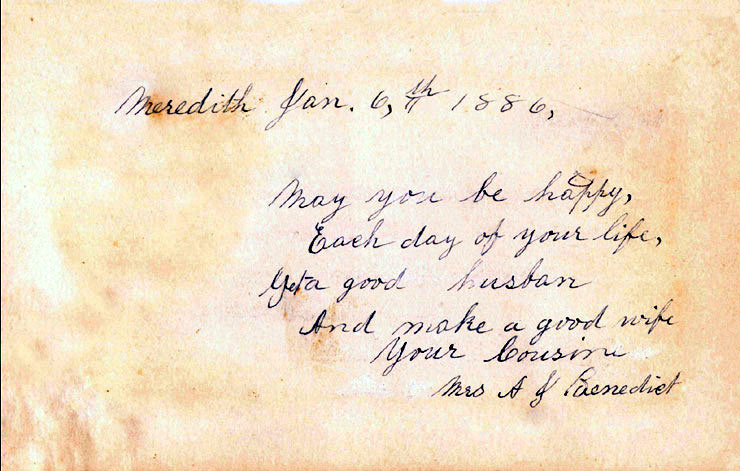 Meredith Jan. 6,th 1886,
May you be happy,
Each day of your life,
Get a good husban
And make a good wife
Your Cousine
Mrs A J Benedict